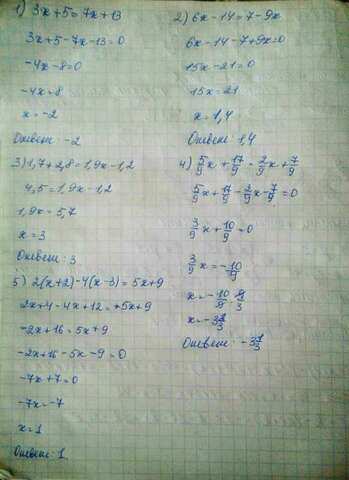 1) 3x+5=7x+13
3x+5-7x-13=0
-4x-8=0
-4x=8
x=-2
Ответ: -2
2) 6x-14=7-9x
6x-14-7+9x=0
15x-21=0
15x=21
x=1,4
Ответ: 1,4
3) 1,7+2,8=1,9x-1,2
4,5=1,9x-1,2
1,9x=5,7
x=3
Ответ: 3
4) 5/9x+17/9=2/9x+7/9
5/9x+17/9-2/9x-7/9=0
3/9x+10/9=0
3/9x=-10/9
x=-10/9·9/3
x=-3 1/3
Ответ: -3 1/3
5) 2(x+2)-4(x-3)=5x+9
2x+4-4x+12=+5x+9
-2x+16=5x+9
-2x+16-5x-9=0
-7x+7=0
-7x=-7
x=1
Ответ: 1